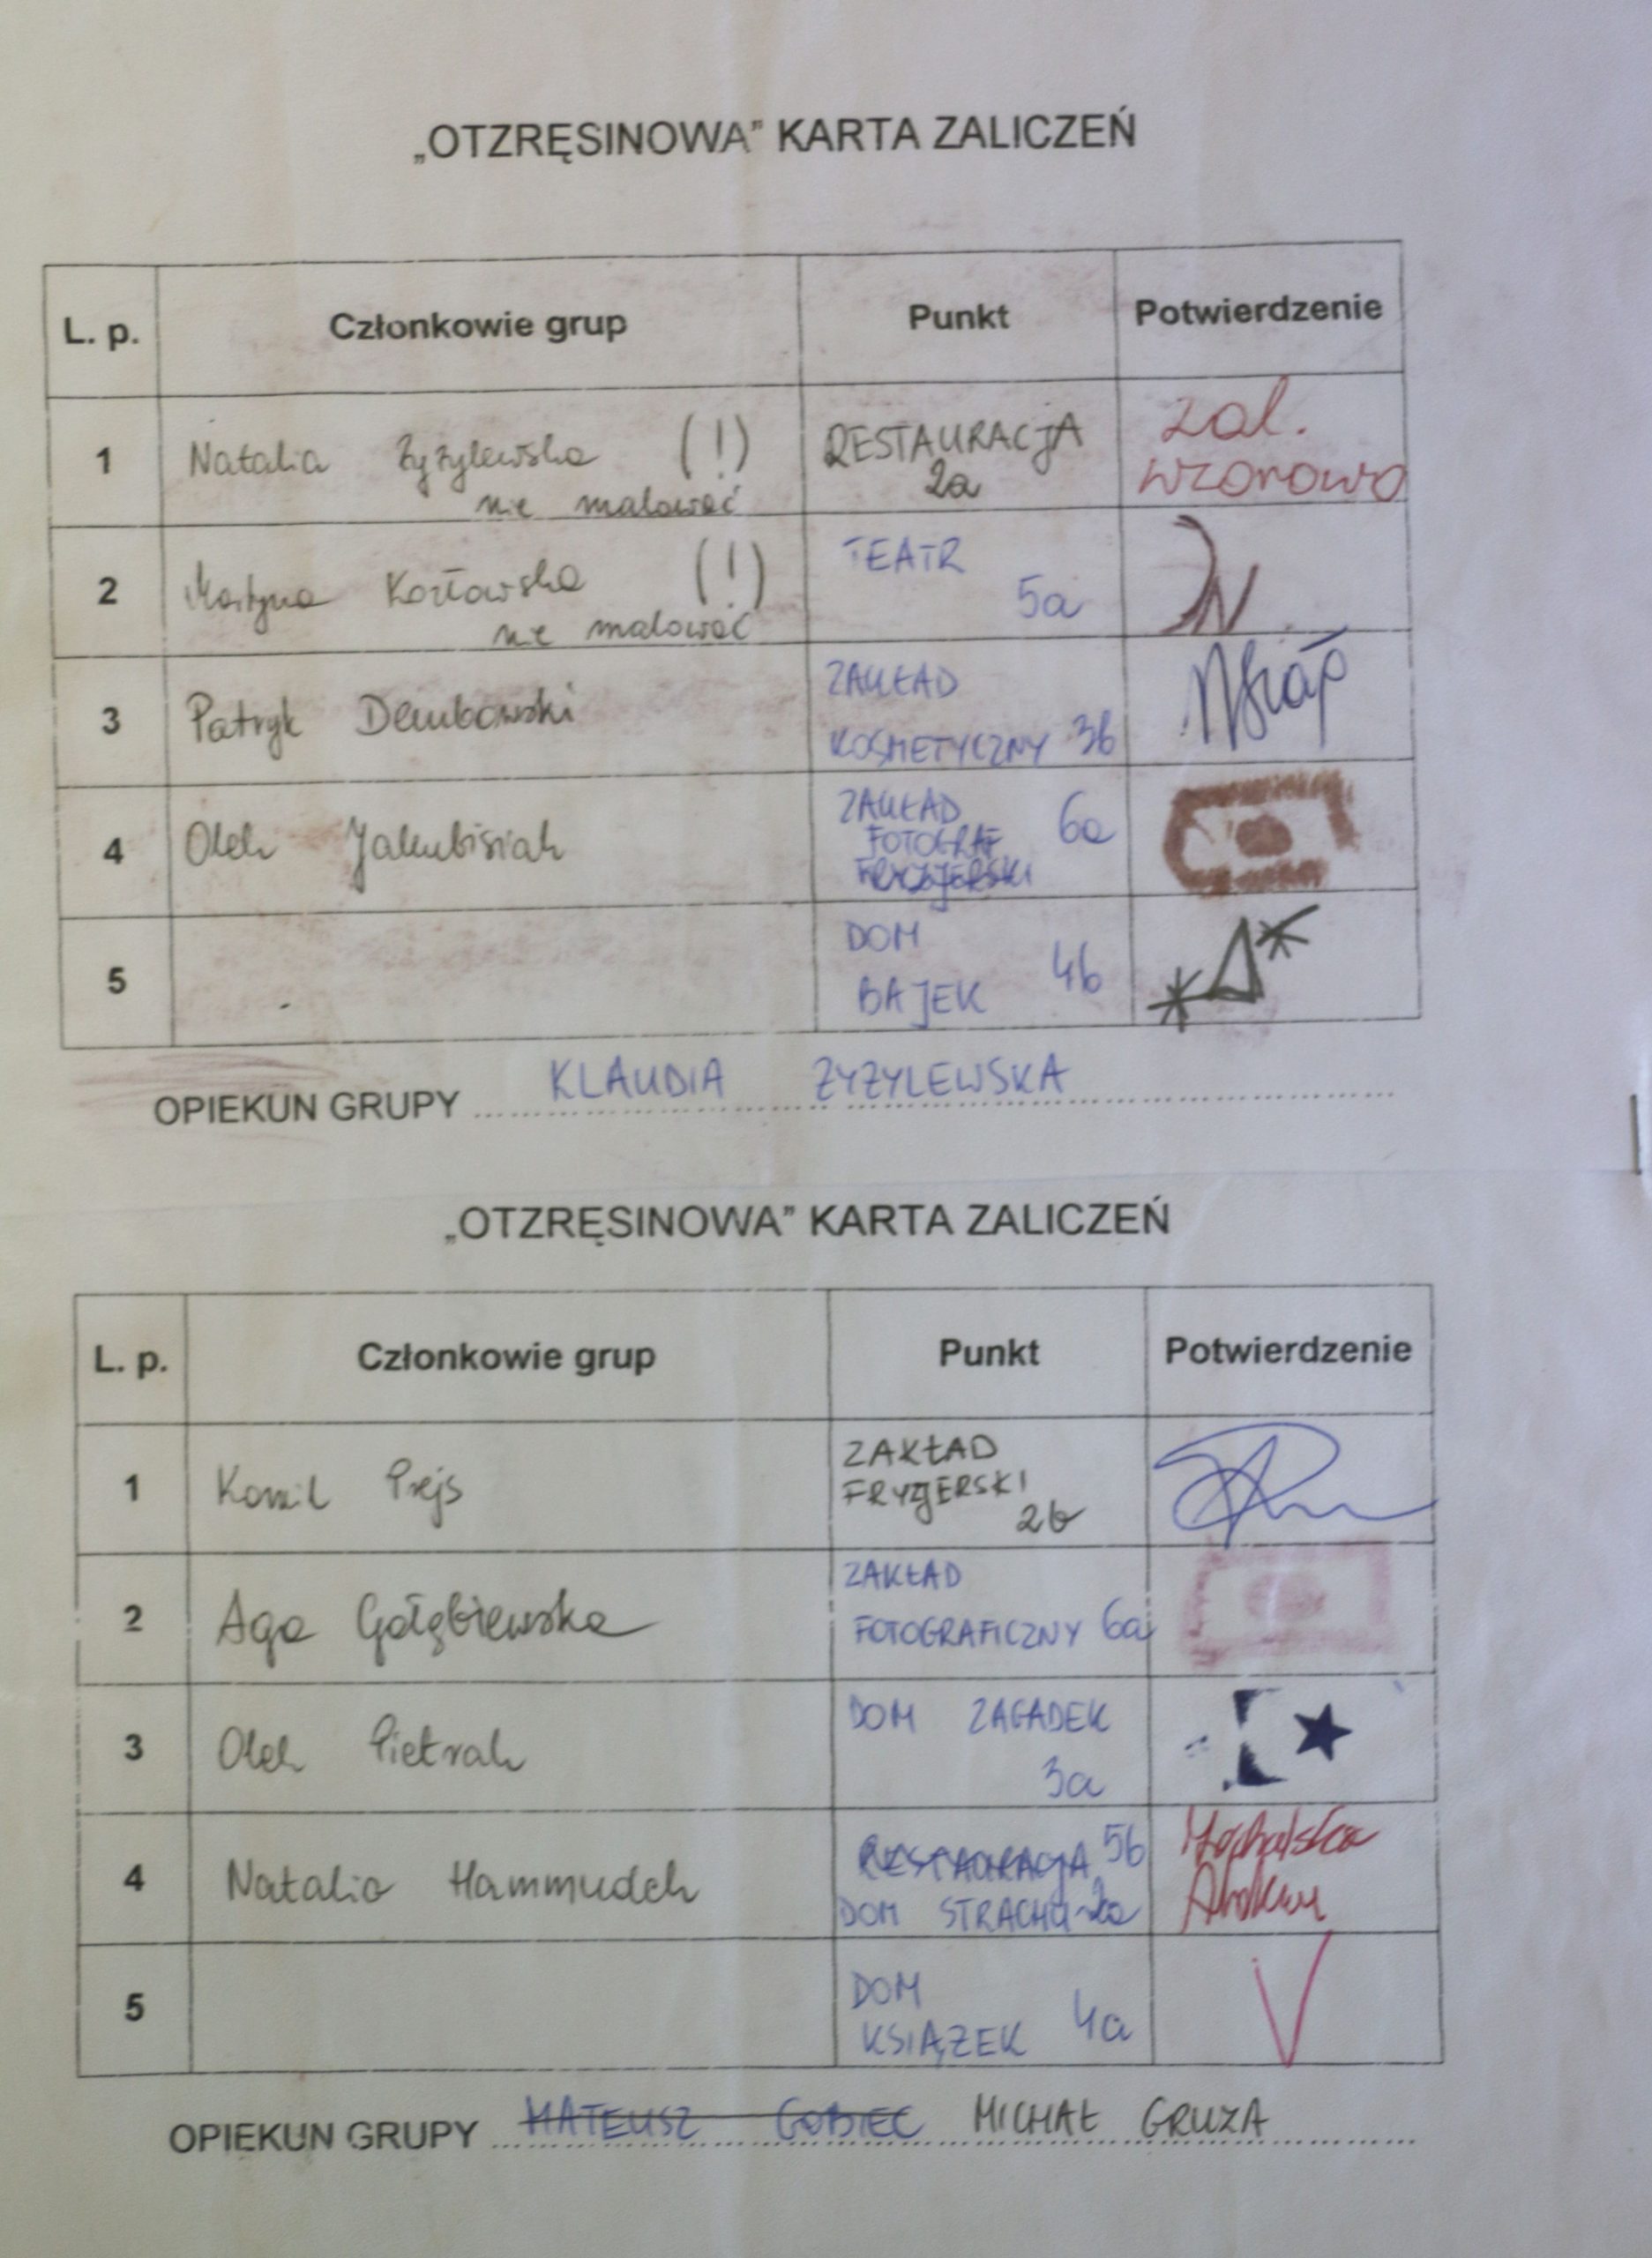 „OTZRĘSINOWA” KARTA ZALICZEŃ
L. p. Członkowie grup Punkt Potwierdzenie
1 Natalia Żyżylewska (!) RESTAURACJA zal.
nie malować 2a wzorowo
2 Martyna Kozłowska (!) TEATR
nie malować 5a
3 Patryk Dembowski ZAKŁAD
KOSMETYCZNY 3b
4 Olek Jakubisiak ZAKŁAD 6a
FOTOGRAF
FRYZJERSKI
5 DOM
BAJEK 4b
OPIEKUN GRUPY KLAUDIA ŻYŻYLEWSKA
„OTZRĘSINOWA” KARTA ZALICZEŃ
L. p. Członkowie grup Punkt Potwierdzenie
1 Kamil Prejs ZAKŁAD
FRYZJERSKI
2b
2 Aga Gołębiewska ZAKŁAD
FOTOGRAFICZNY 6a
3 Olek Pietrak DOM ZAGADEK
3a
4 Natalia Hammudeh RESTAURACJA 5b
DOM STRACHU
5 DOM
KSIĄŻEK 4a V
OPIEKUN GRUPY MATEUSZ GOBIEC MICHAŁ GRUZA